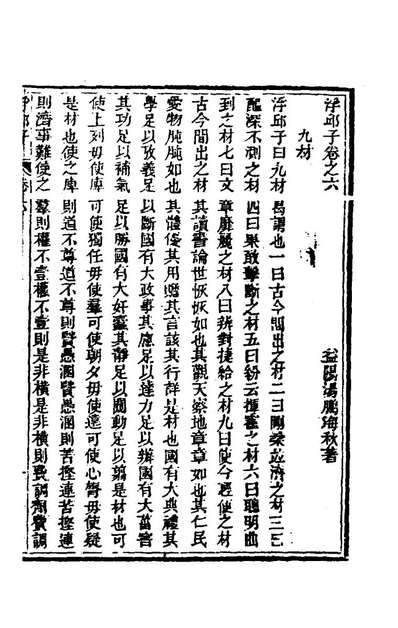 浮邱子卷之六
益陽湯鵬海秋著
九材
浮邱子曰九材曷謂也一曰古今間出之材二曰剛柔迭濟之材三曰
配深不測之材四曰果敢擊斷之材五曰紛云揮霍之材六曰聰明曲
到之材七曰文章麗靡之材八曰辨對捷給之材九曰使令輕便之材
古今間出之材其讀書論世恢恢如也其觀天察地章章如也其仁民
愛物肫肫如也其體俊其用贍其言該其行群是材也國有大典禮其
學足以攷義足以斷國有大政事其應足以達力足以辦國有大菑害
其功足以補氣足以勝國有大奸蠹其靜足以鎮動足以翦是材也可
使上列毋使庳可使獨任毋使羣可使朝夕毋使遠可使心膂毋使疑
是材也使之庳則道不尊道不尊則賢愚溷賢愚溷則苦摼連苦摼連
則濟事難使之羣則權不壹權不壹則是非橫是非橫則費調劑費調